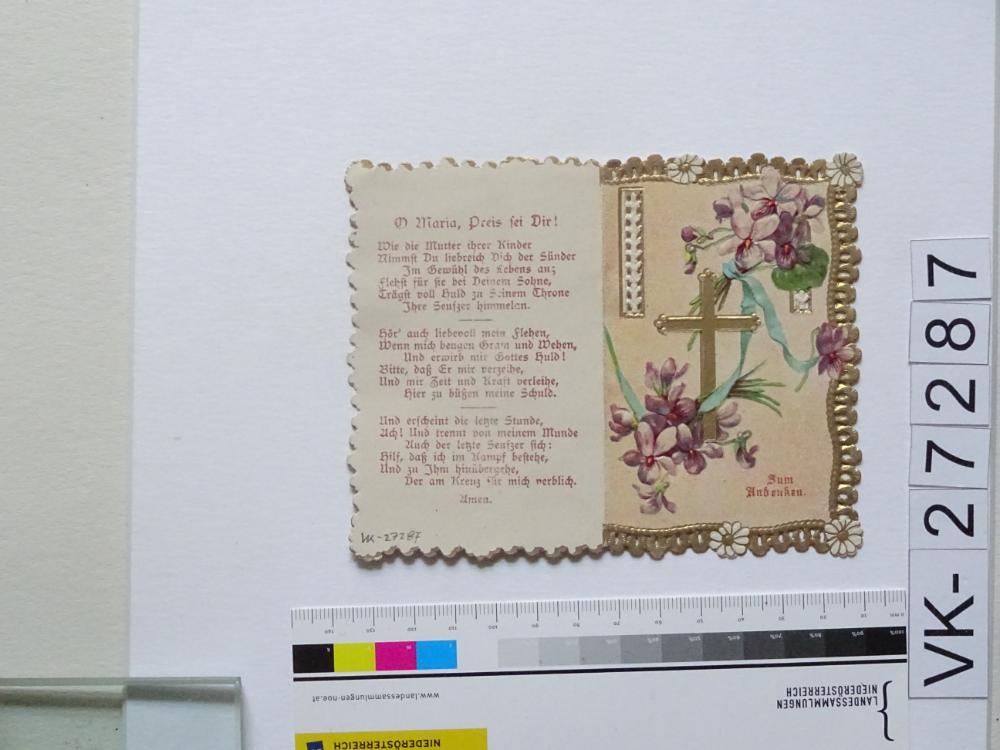 O Maria, Preis sei Dir!
Wie die Mutter ihrer Kinder
Nimmst Du liebreich Dich der Sünder
Im Gewühl des Lebens an;
Flehst für sie bei Deinem Sohne,
Trägst voll Huld zu Seinem Throne
Ihre Seufzer himmelan.
Hör' auch liebevoll mein Flehen,
Wenn mich beugen Gram und Wehen,
Und erwirb mir Gottes Huld!
Bitte, daß Er mir verzeihe,
Und mir Zeit und Kraft verleihe,
Hier zu büßen meine Schuld.
Und erscheint die letzte Stunde,
Ach! Und trennt von meinem Munde
Auch der letzte Seufzer sich:
Hilf, daß ich im Kampf bestehe,
Und zu Ihm hinübergehe,
Der am Kreuz für mich verblich.
Amen.
VK-27287
Zum
Andenken.
VK-27287
www.landessammlungen-noe.at
LANDESSAMMLUNGEN
NIEDERÖSTERREICH
NIEDERÖSTERREICH